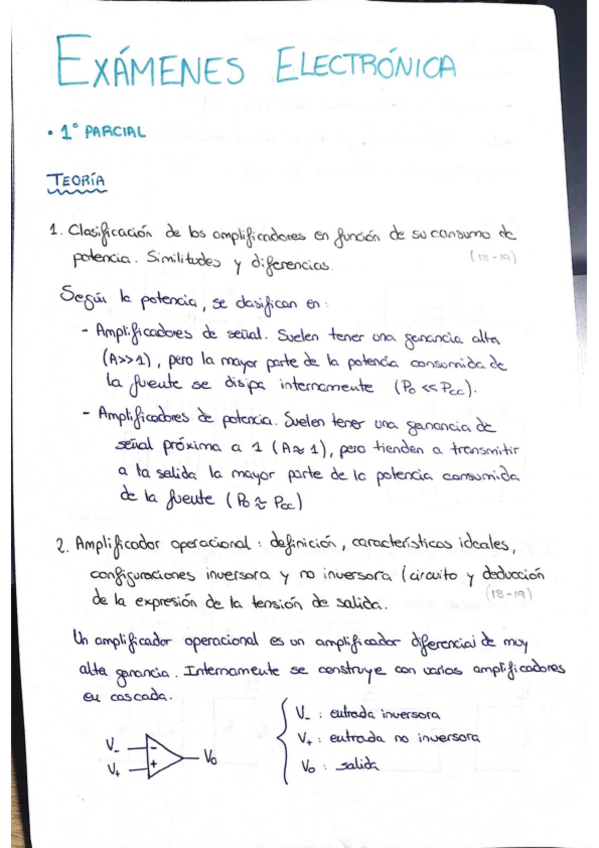 EXÁMENES ELECTRÓNICA
• 1º PARCIAL
TEORÍA
1. Clasificación de los amplificadores en función de su consumo de
potencia. Similitudes y diferencias. (18-19)
Según la potencia, se clasifican en:
- Amplificadores de señal. Suelen tener una ganancia alta
(A>>1), pero la mayor parte de la potencia consumida de
la fuente se disipa internamente (Po << Pcc).
- Amplificadores de potencia. Suelen tener una ganancia de
señal próxima a 1 (A≈1), pero tienden a transmitir
a la salida la mayor parte de la potencia consumida
de la fuente (Po ≈ Pcc)
2. Amplificador operacional: definición, características ideales,
configuraciones inversora y no inversora (circuito y deducción
de la expresión de la tensión de salida. (18-19)
Un amplificador operacional es un amplificador diferencial de muy
alta ganancia. Internamente se construye con varios amplificadores
en cascada.
V- : entrada inversora
V+ : entrada no inversora
Vo : salida
V- -
V+ +
Vo